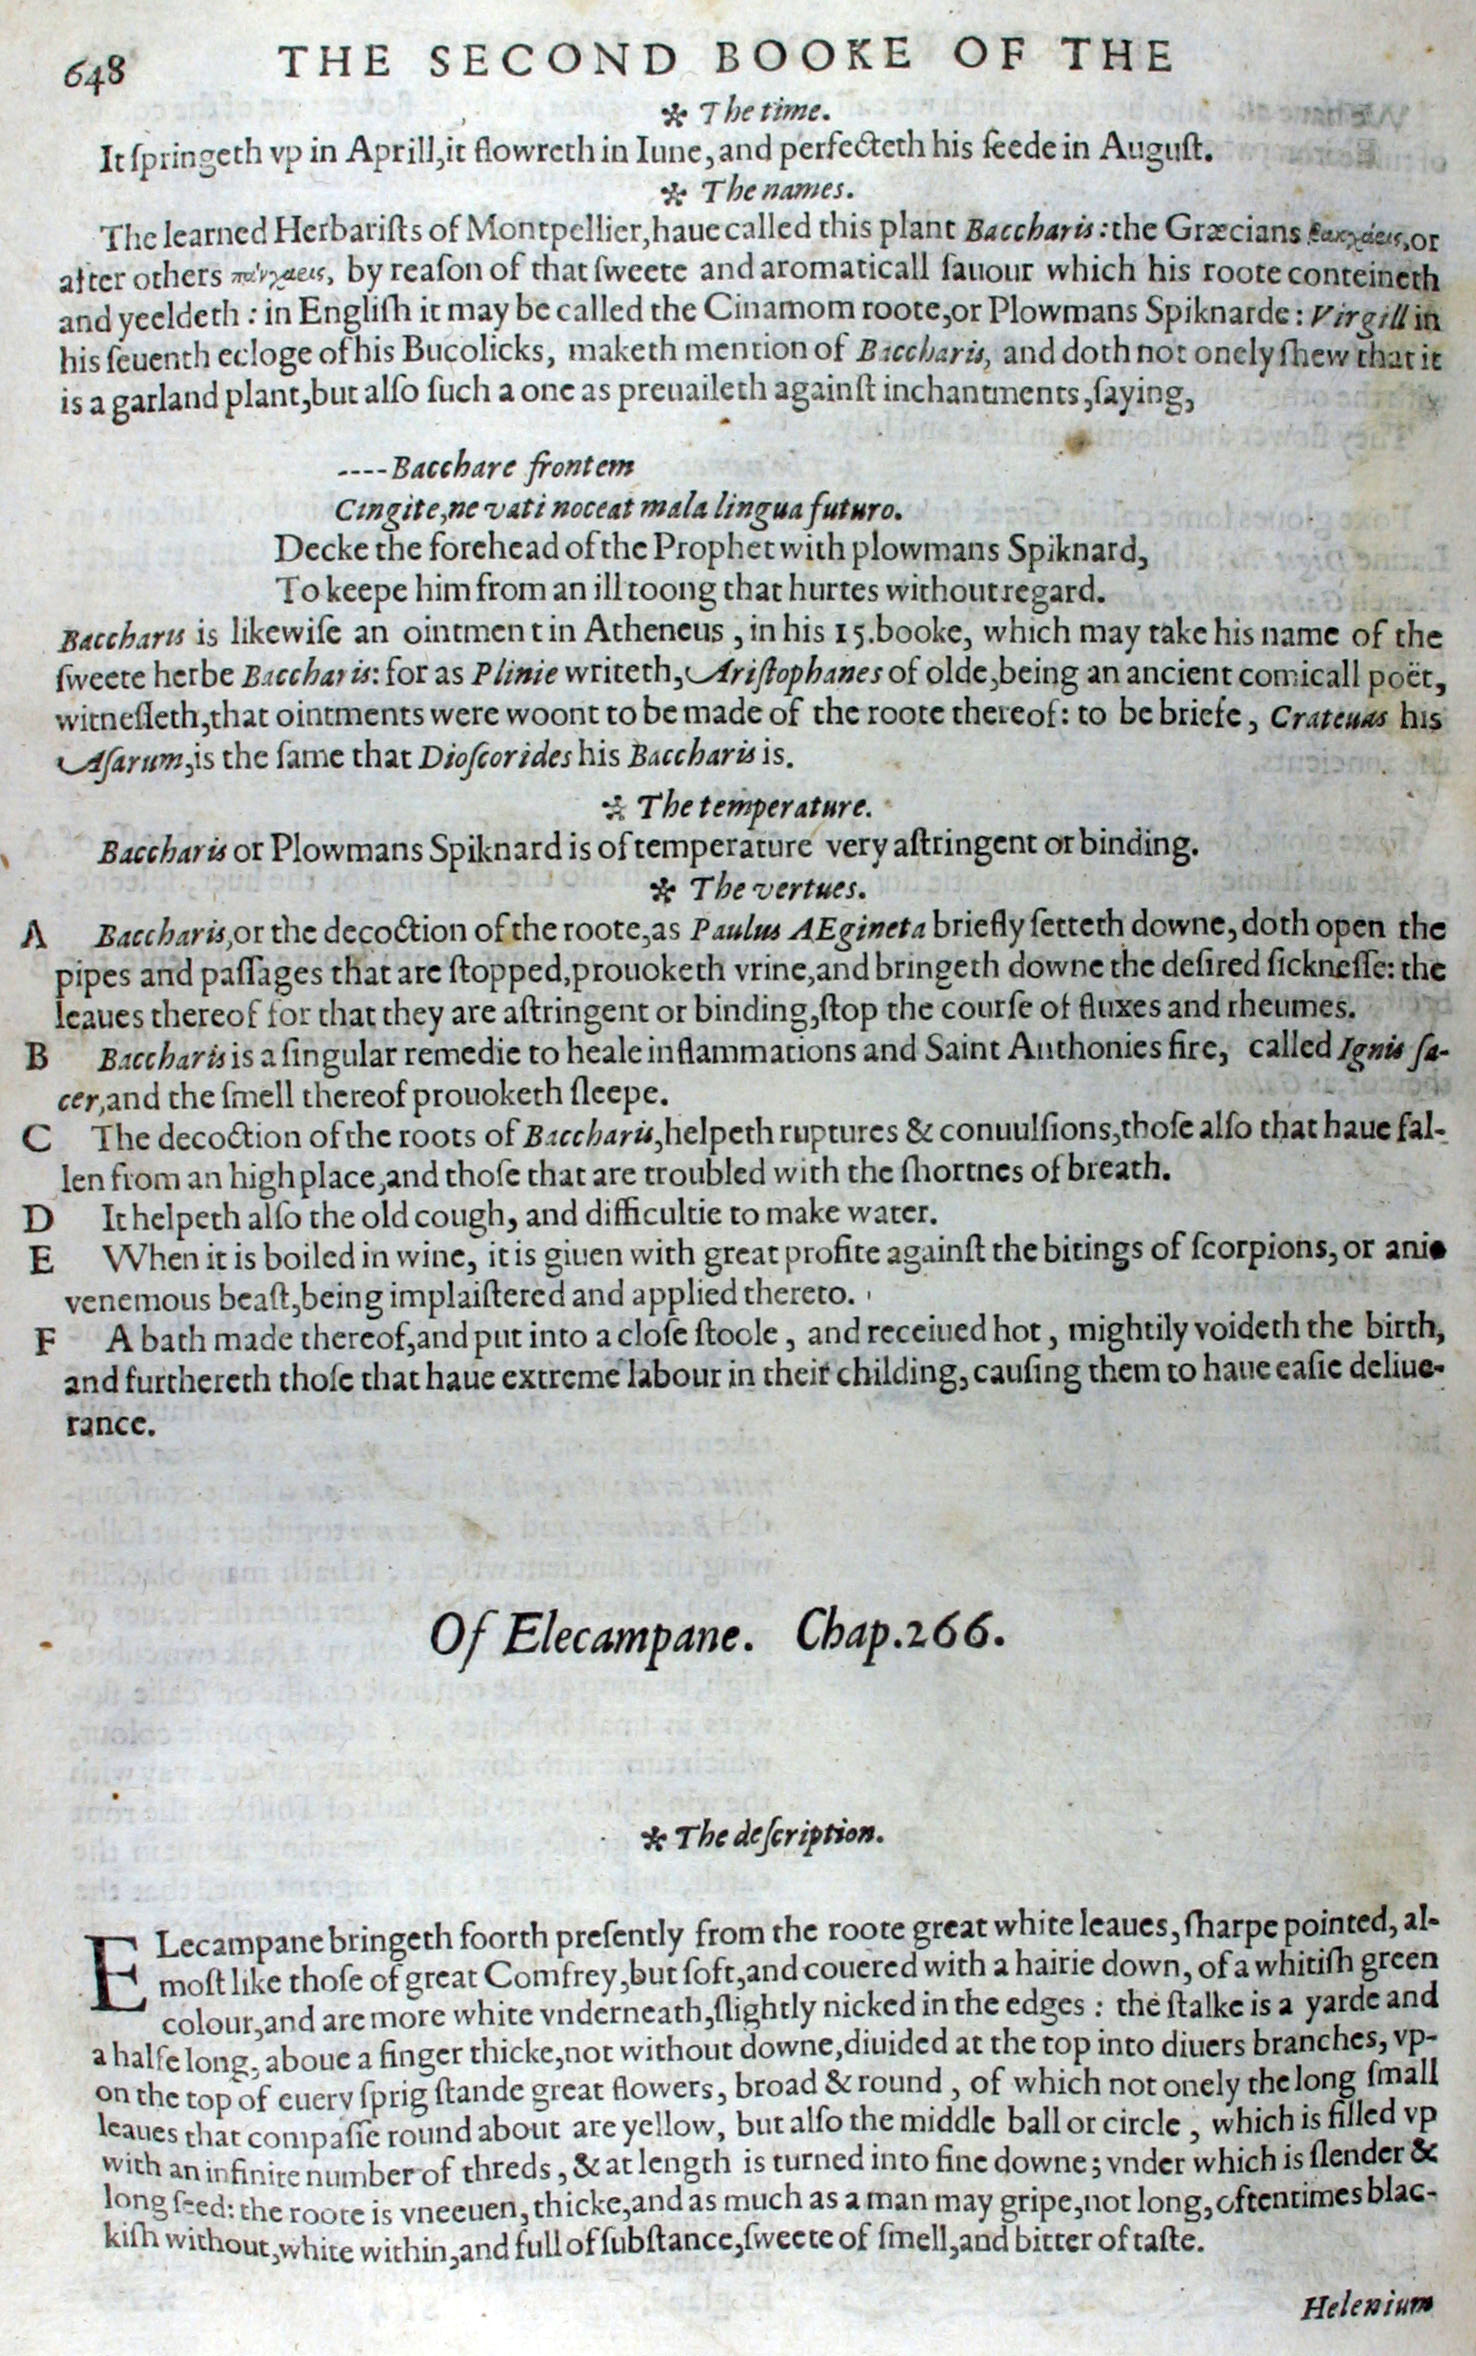 648 THE SECOND BOOKE OF THE
✲ The time.
It ſpringeth vp in Aprill, it flowreth in Iune, and perfecteth his ſeede in Auguſt.
✲ The names.
The learned Herbariſts of Montpellier, haue called this plant Baccharis: the Græcians or
after others by reaſon of that ſweete and aromaticall ſauour which his roote conteineth
and yeeldeth: in Engliſh it may be called the Cinamom roote, or Plowmans Spiknarde: Virgill in
his ſeuenth ecloge of his Bucolicks, maketh mention of Baccharis, and doth not onely ſhew that it
is a garland plant, but alſo ſuch a one as preuaileth againſt inchantments, ſaying,
----Bacchare frontem
Cingite, ne vati noceat mala lingua futuro.
Decke the forehead of the Prophet with plowmans Spiknard,
To keepe him from an ill toong that hurtes without regard.
Baccharis is likewiſe an ointment in Atheneus, in his 15. booke, which may take his name of the
ſweete herbe Baccharis: for as Plinie writeth, Ariſtophanes of olde, being an ancient comicall poët,
witneſſeth, that ointments were woont to be made of the roote thereof: to be briefe, Crateuas his
Aſarum, is the ſame that Dioſcorides his Baccharis is.
✲ The temperature.
Baccharis or Plowmans Spiknard is of temperature very aſtringent or binding.
✲ The vertues.
A Baccharis, or the decoction of the roote, as Paulus AEgineta briefly ſetteth downe, doth open the
pipes and paſſages that are ſtopped, prouoketh vrine, and bringeth downe the deſired ſickneſſe: the
leaues thereof for that they are aſtringent or binding, ſtop the courſe of fluxes and rheumes.
B Baccharis is a ſingular remedie to heale inflammations and Saint Anthonies fire, called Ignis ſa-
cer, and the ſmell thereof prouoketh ſleepe.
C The decoction of the roots of Baccharis, helpeth ruptures & conuulſions, thoſe alſo that haue fal-
len from an high place, and thoſe that are troubled with the ſhortnes of breath.
D It helpeth alſo the old cough, and difficultie to make water.
E When it is boiled in wine, it is giuen with great profite againſt the bitings of ſcorpions, or anie
venemous beaſt, being implaiſtered and applied thereto.
F A bath made thereof, and put into a cloſe ſtoole, and receiued hot, mightily voideth the birth,
and furthereth thoſe that haue extreme labour in their childing, cauſing them to haue eaſie deliue-
rance.
Of Elecampane. Chap. 266.
✲ The deſcription.
ELecampane bringeth foorth preſently from the roote great white leaues, ſharpe pointed, al-
moſt like thoſe of great Comfrey, but ſoft, and couered with a hairie down, of a whitiſh green
colour, and are more white vnderneath, ſlightly nicked in the edges: the ſtalke is a yarde and
a halfe long, aboue a finger thicke, not without downe, diuided at the top into diuers branches, vp-
on the top of euery ſprig ſtande great flowers, broad & round, of which not onely the long ſmall
leaues that compaſſe round about are yellow, but alſo the middle ball or circle, which is filled vp
with an infinite number of threds, & at length is turned into fine downe; vnder which is ſlender &
long ſeed: the roote is vneeuen, thicke, and as much as a man may gripe, not long, oftentimes blac-
kiſh without, white within, and full of ſubſtance, ſweete of ſmell, and bitter of taſte.
Helenium